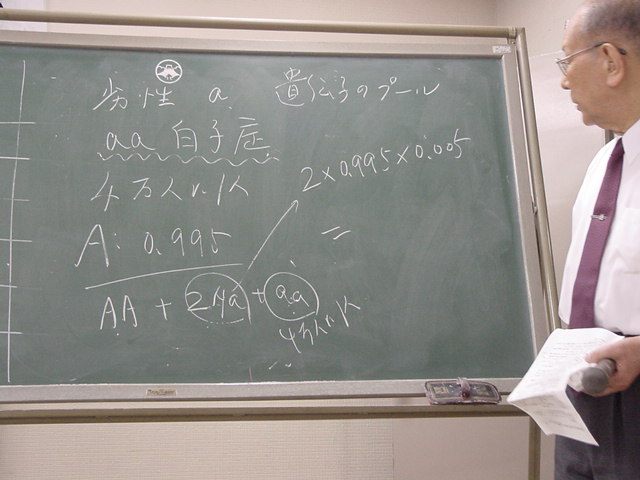 劣性 a 遺伝子のプール
aa 白子症
4万人に1人
2×0.995×0.005
A: 0.995
=
AA + 2Aa + aa
4万人に1人